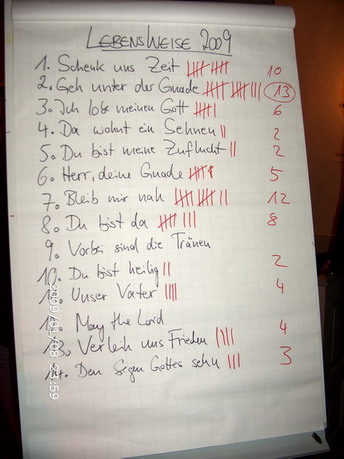 LEBENSWEISE 2009
1. Schenk uns Zeit 10
2. Geh unter der Gnade 13
3. Ich lobe meinen Gott 6
4. Da wohnt ein Sehnen 2
5. Du bist meine Zuflucht 2
6. Herr, deine Gnade 5
7. Bleib mir nah 12
8. Du bist da 8
9. Vorbei sind die Tränen
10. Du bist heilig 2
Unser Vater 4
May the Lord 4
13. Verleih uns Frieden
14. Den Segen Gottes sehn 3